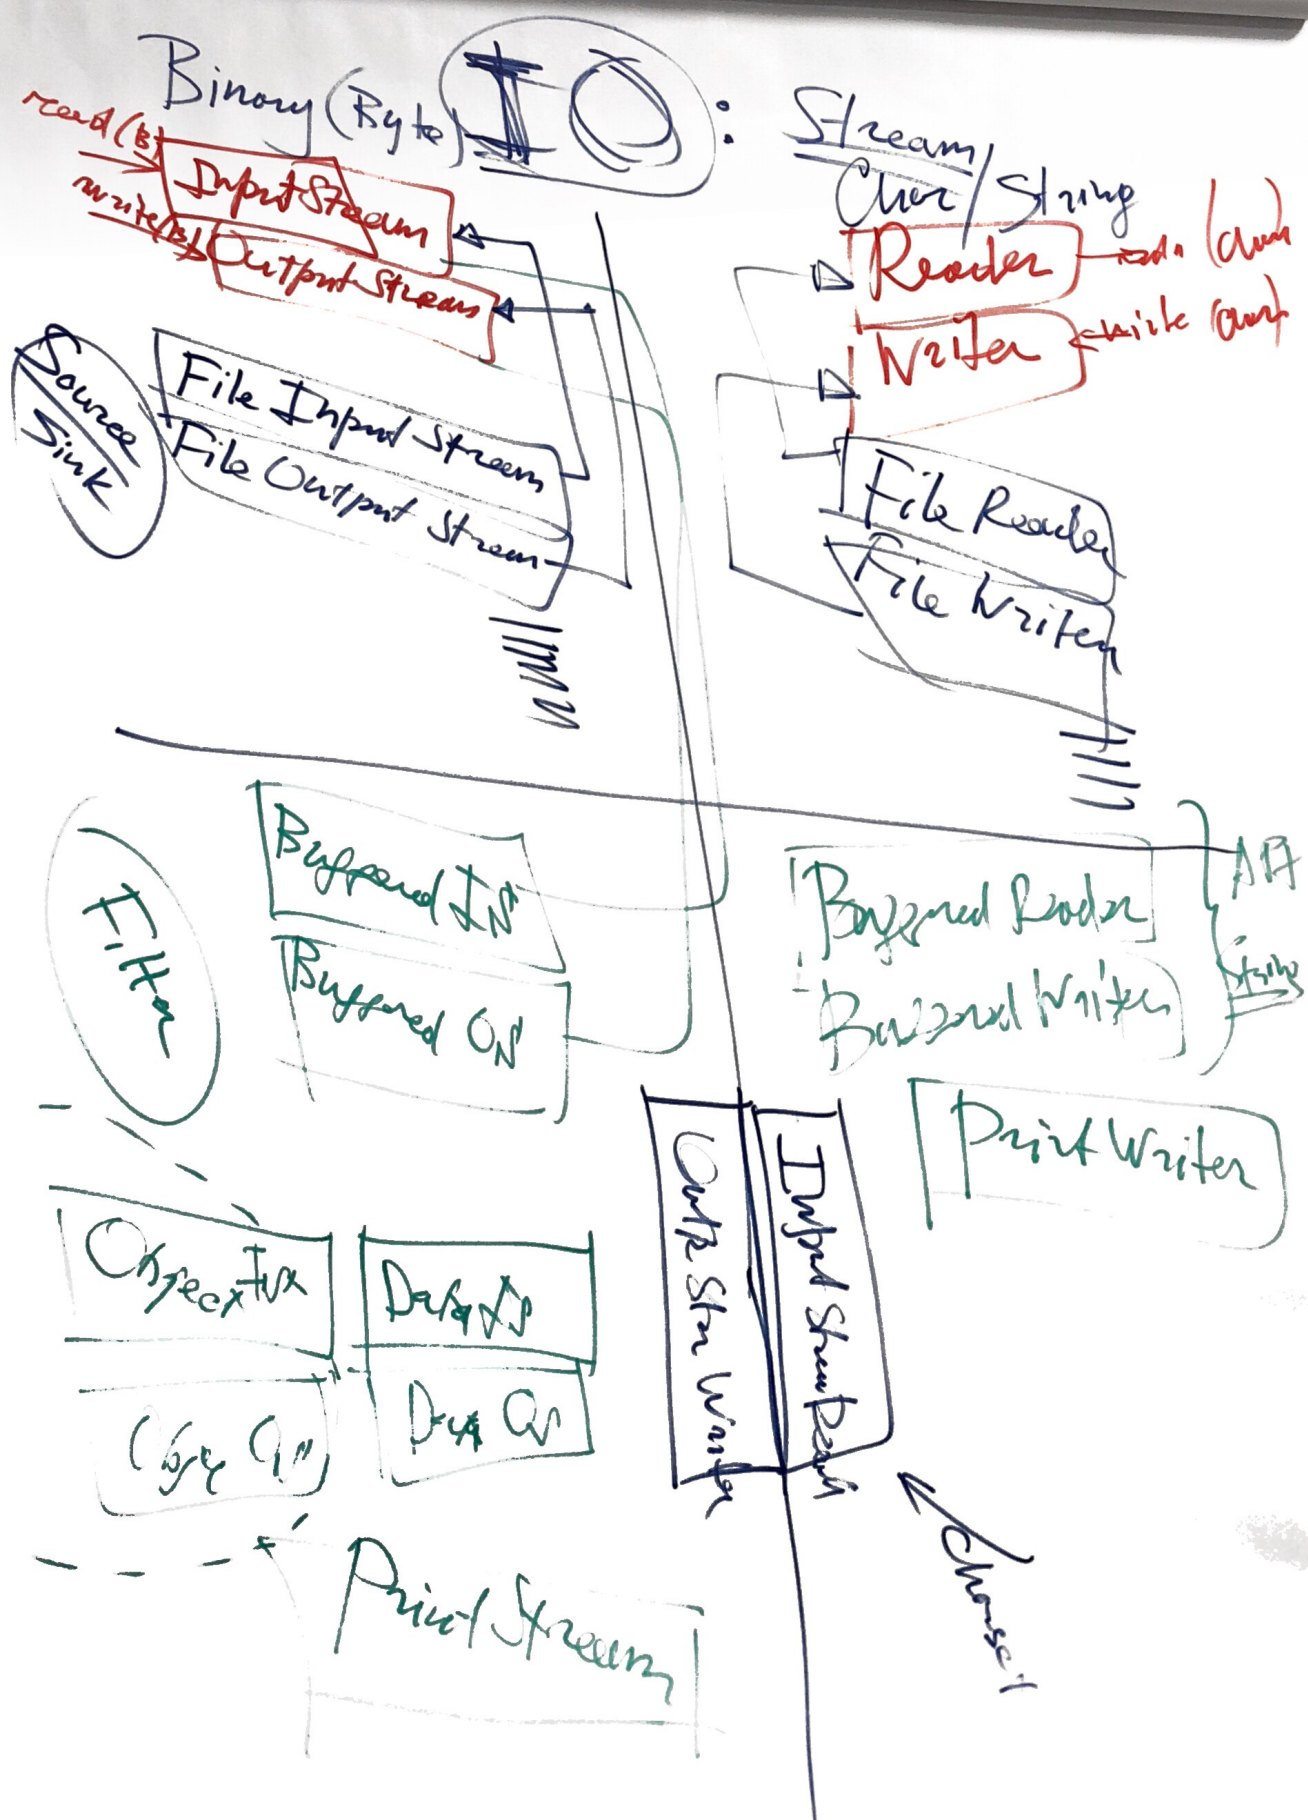 Binary (Byte) IO : Stream
Char/String
read(B)
InputStream
write(B)
OutputStream
Reader
Writer
write (char)
Source
Sink
File Input Stream
File Output Stream
File Reader
File Writer
Filter
Buffered IS
Buffered OS
Buffered Reader
Buffered Writer
API
String
PrintWriter
Data IS
Data OS
Outp Str Writer
Input StreamRead
Charset
PrintStream